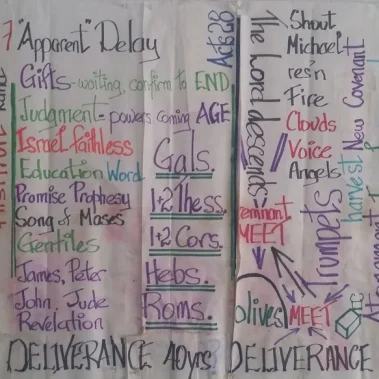 7 "Apparent" Delay
Gifts-waiting, confirm to END
Judgment-powers coming AGE
Israel faithless
Education Word
Promise Prophesy
Song of Moses
Gentiles
James, Peter
John, Jude
Revelation
Acts 28
Gals.
1+2 Thess.
1+2 Cors.
Hebs.
Roms.
The Lord descends>
remnant
MEET
Olives
Shout
Michael+
res'n
Fire
Clouds
Voice
Angels
Trumpets
harvest New Covenant
MEET
DELIVERANCE 40yrs DELIVERANCE